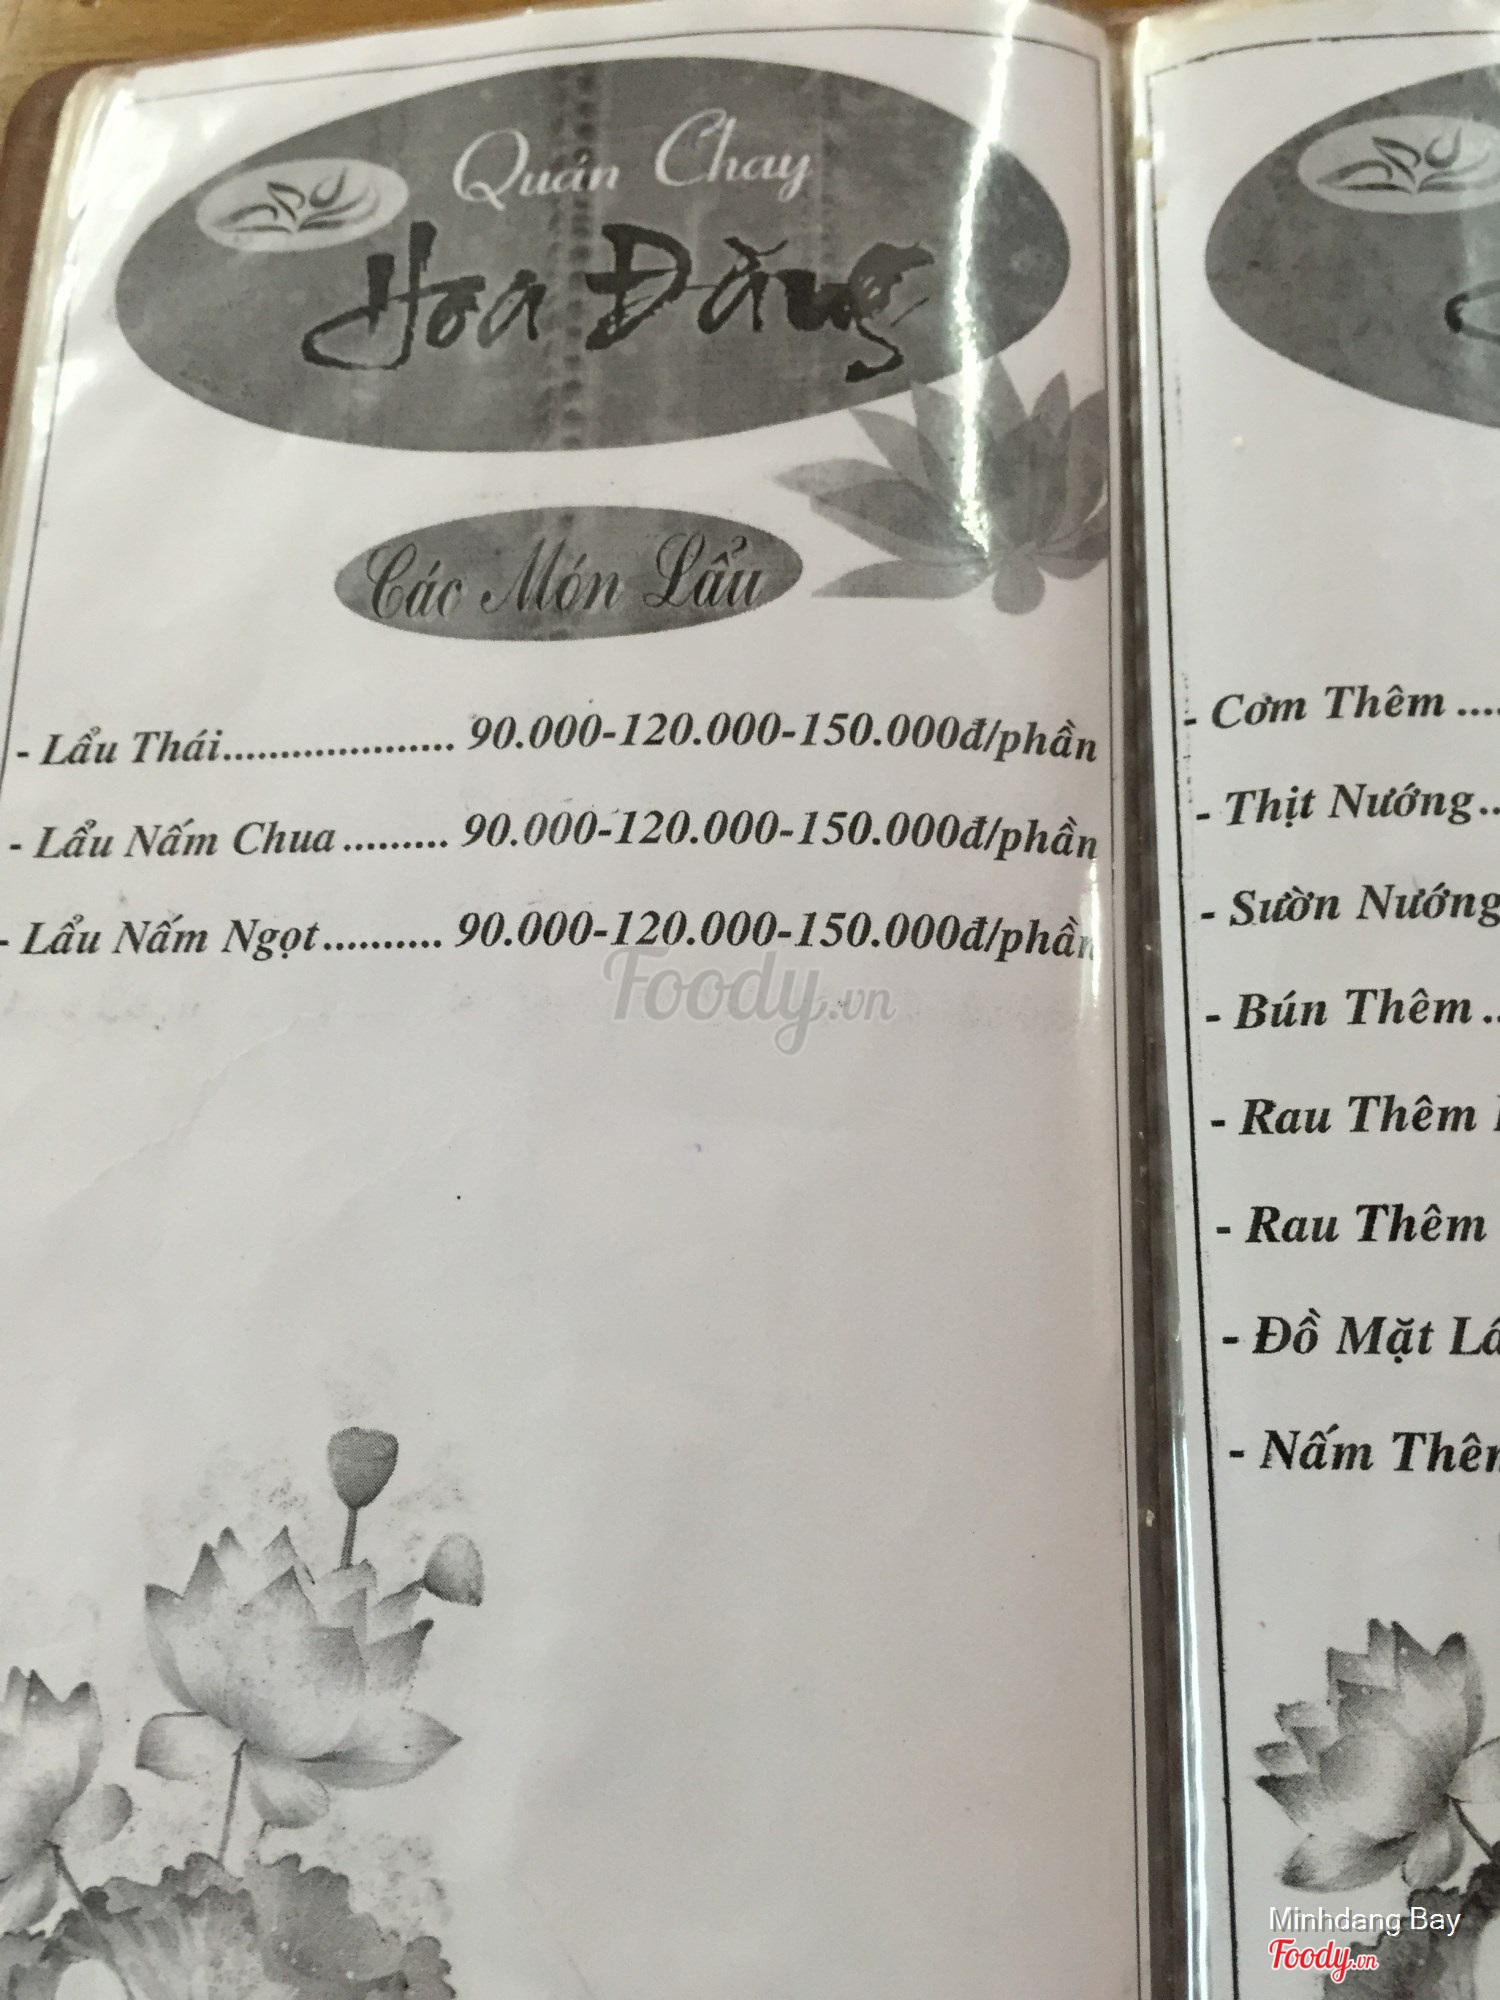 Quán Chay
Hoa Đăng
Các Món Lẩu
- Lẩu Thái.................... 90.000-120.000-150.000đ/phần
- Lẩu Nấm Chua ......... 90.000-120.000-150.000đ/phần
- Lẩu Nấm Ngọt.......... 90.000-120.000-150.000đ/phần
Foody.vn
- Cơm Thêm ....
- Thịt Nướng..
- Sườn Nướng
- Bún Thêm ..
- Rau Thêm
- Rau Thêm
- Đồ Mặt
- Nấm
Minhdang Bay
Foody.vn